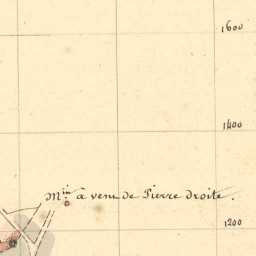 1600
1400
Min à vent de Pierre droite.
1200